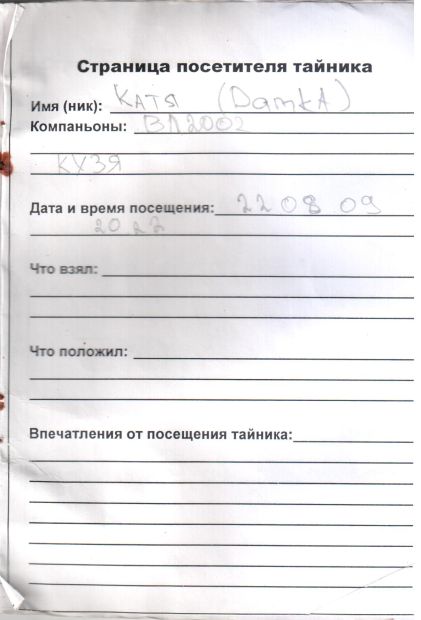 Страница посетителя тайника
Имя (ник): Катя (DamkA)
Компаньоны: ВЛ2002
Кузя
Дата и время посещения: 22 08 09
20 22
Что взял:
Что положил:
Впечатления от посещения тайника: